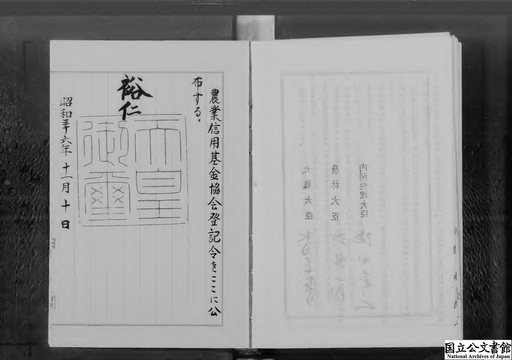 農業信用基金協会登記令をここに公
布する。
裕仁
天皇
御璽
昭和三十六年十一月十日
内閣総理大臣
農林大臣
大蔵大臣
国立公文書館
National Archives of Japan